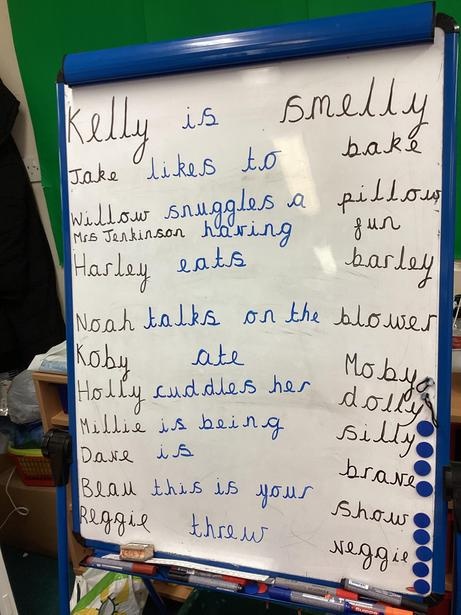 Kelly is smelly
Jake likes to bake
Willow snuggles a pillow
Mrs Jenkinson having fun
Harley eats barley
Noah talks on the blower
Koby ate Moby
Holly cuddles her dolly
Millie is being silly
Dave is brave
Beau this is your show
Reggie threw veggie